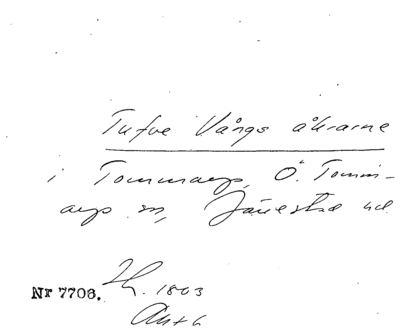 Tufve Vångs åkrarne
i Tommarp, Ö. Tomm-
arps sn, Järrestad hd
Nr 7706. 1803